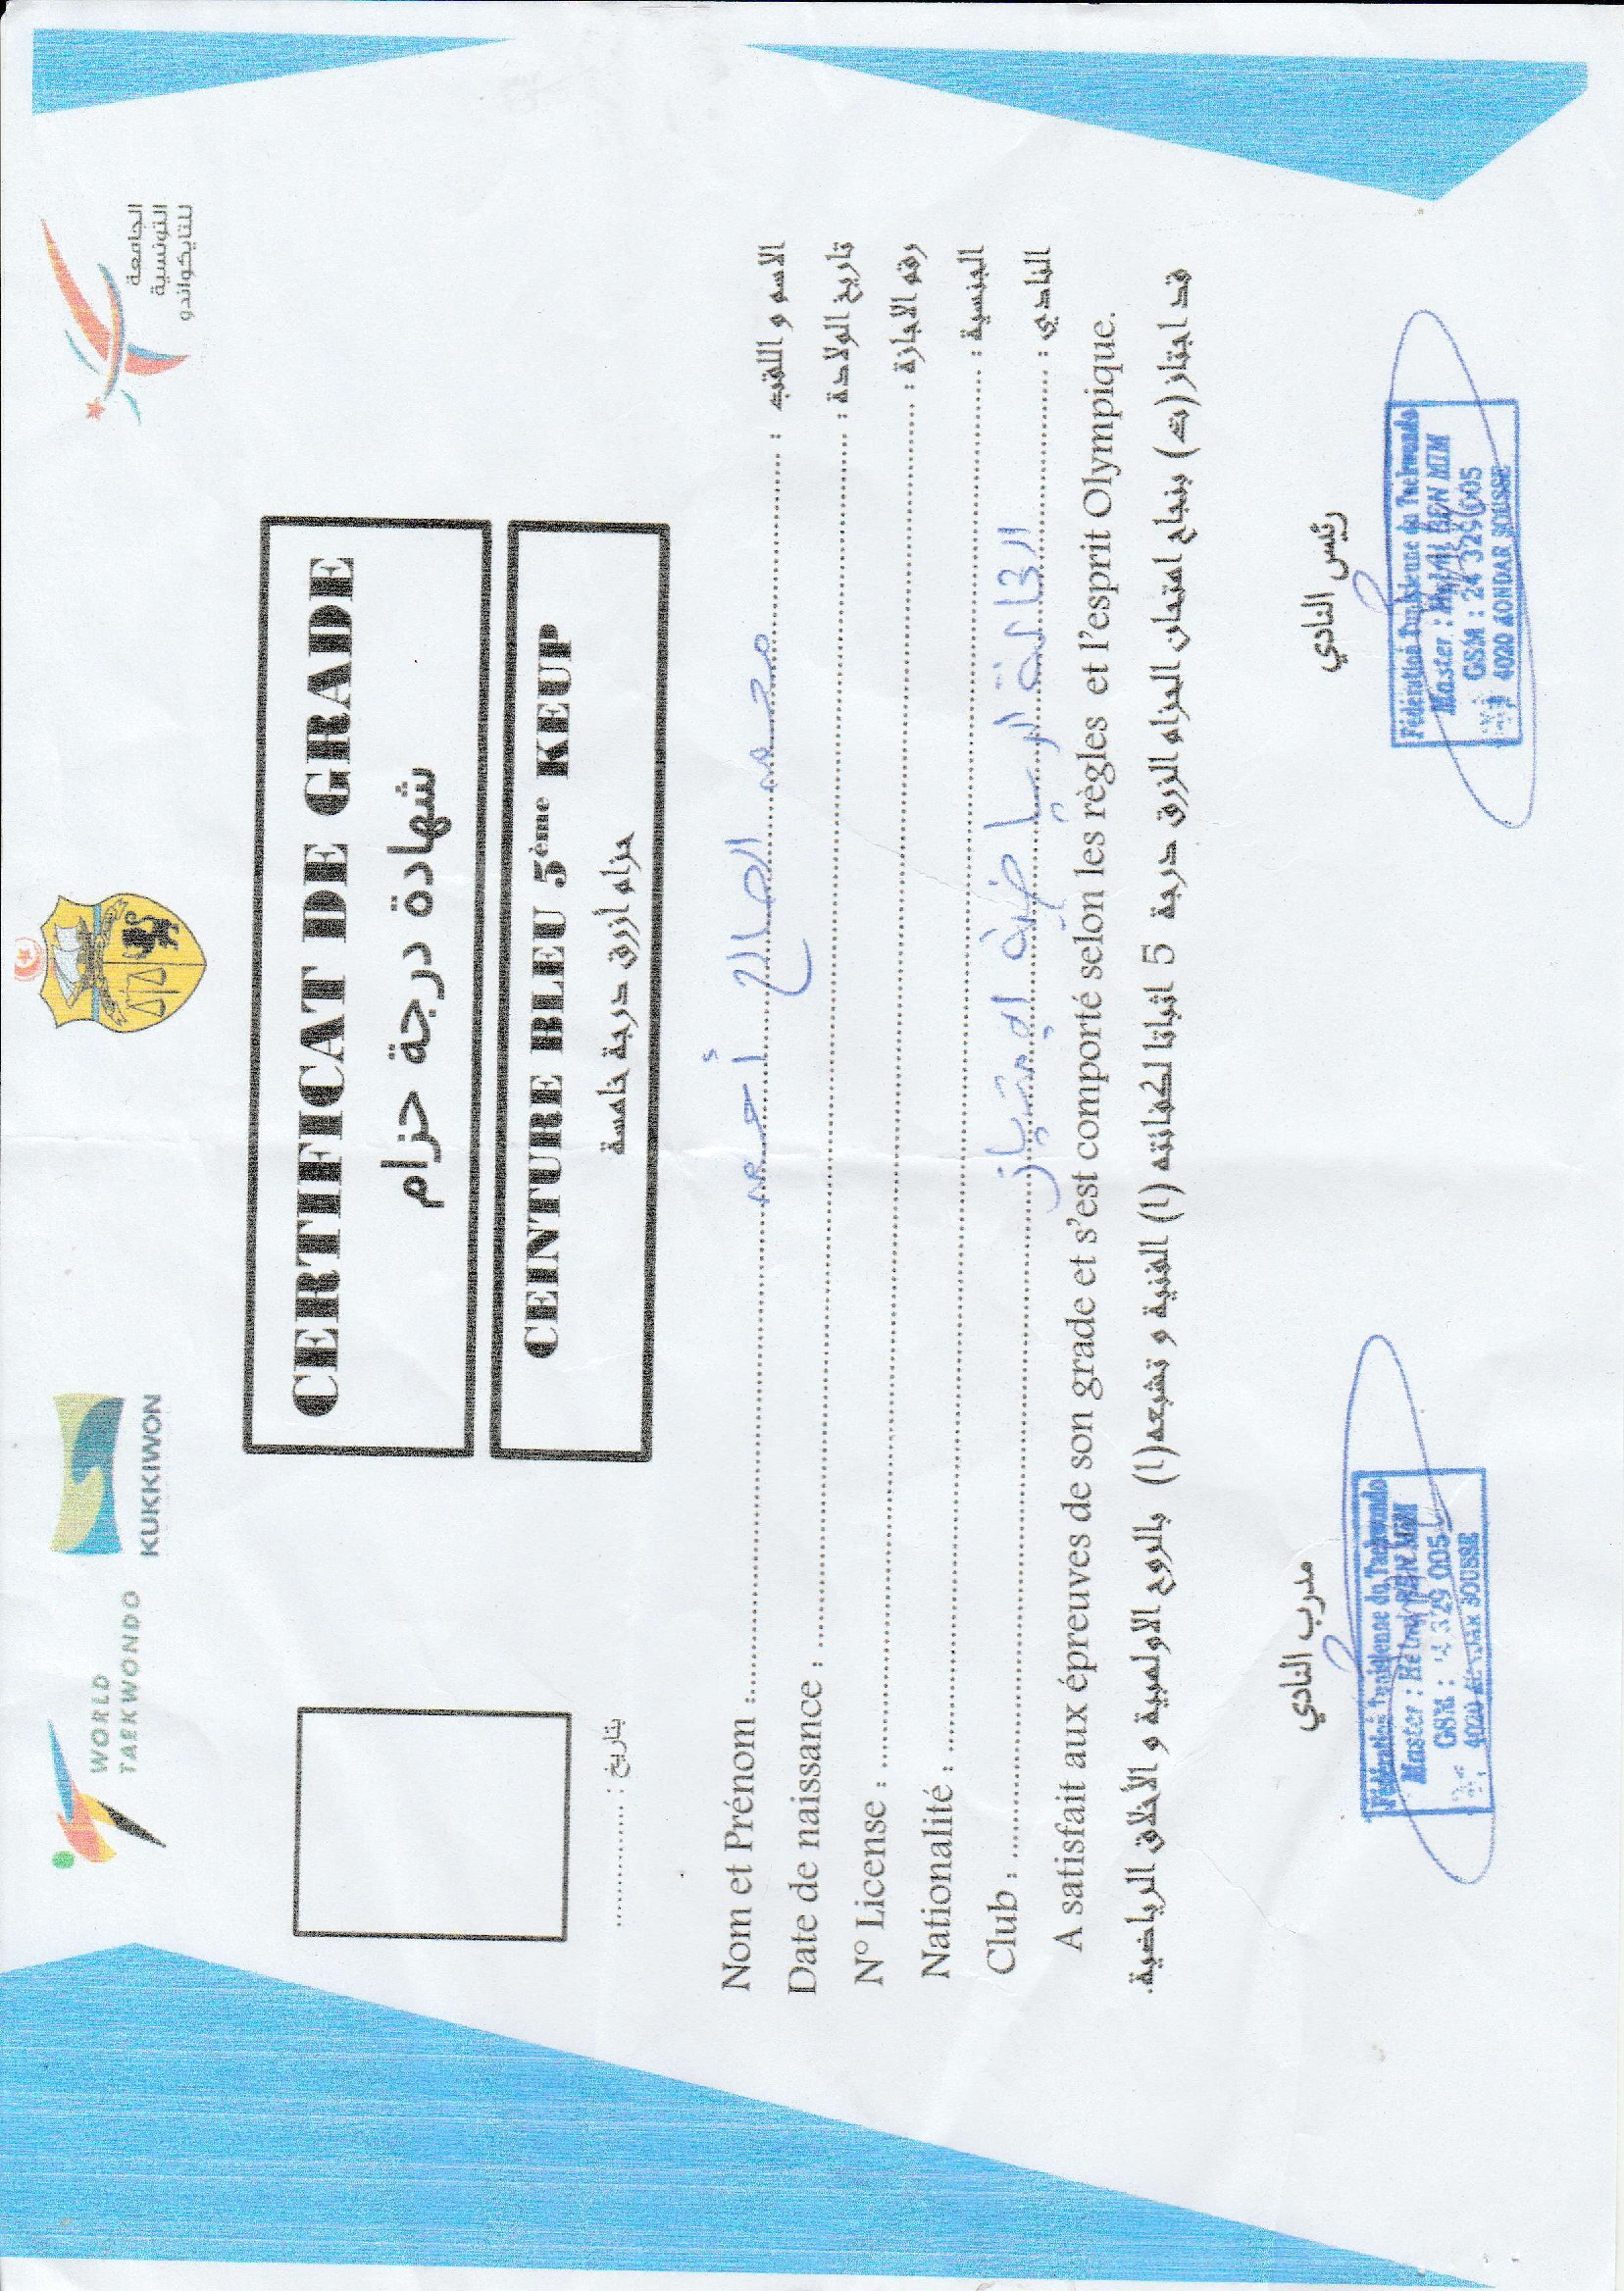 WORLD
TAEKWONDO
KUKKIWON
الجامعة
التونسية
للتايكواندو
CERTIFICAT DE GRADE
شهادة درجة حزام
CEINTURE BLEU 5ème KEUP
حزام أزرق درجة خامسة
بتاريخ : ............
Nom et Prénom : محمد الصالح أحمد : الاسم و اللقب
Date de naissance : : تاريخ الولادة
N° License : : رقم الاجازة
Nationalité : : الجنسية
Club : الرياضية : النادي
A satisfait aux épreuves de son grade et s'est comporté selon les règles et l'esprit Olympique.
قد اجتاز(ت) بنجاح امتحان الحزام الزرق درجة 5 اثباتا لكفائته (ا) الفنية و تشبعه(ا) بالروح الاولمبية و الأخلاق الرياضية.
مدرب النادي
رئيس النادي
Fédération Tunisienne du Taekwondo
Master : BEN MIM
GSM : 329 005
4020 SOUSSE
Fédération Tunisienne du Taekwondo
Master : BEN MIM
GSM : 24 329 005
4020 KONDAR SOUSSE